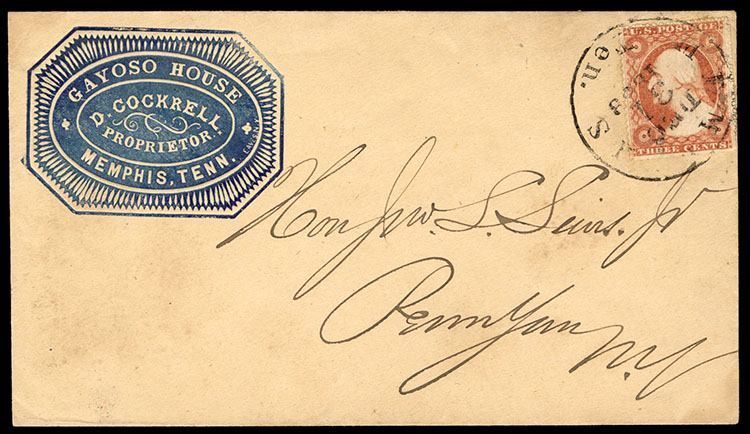 GAYOSO HOUSE
D. COCKRELL
PROPRIETOR.
MEMPHIS, TENN.
U.S. POSTAGE
THREE CENTS
Hon Jno. S.
Penn Yan
N.Y